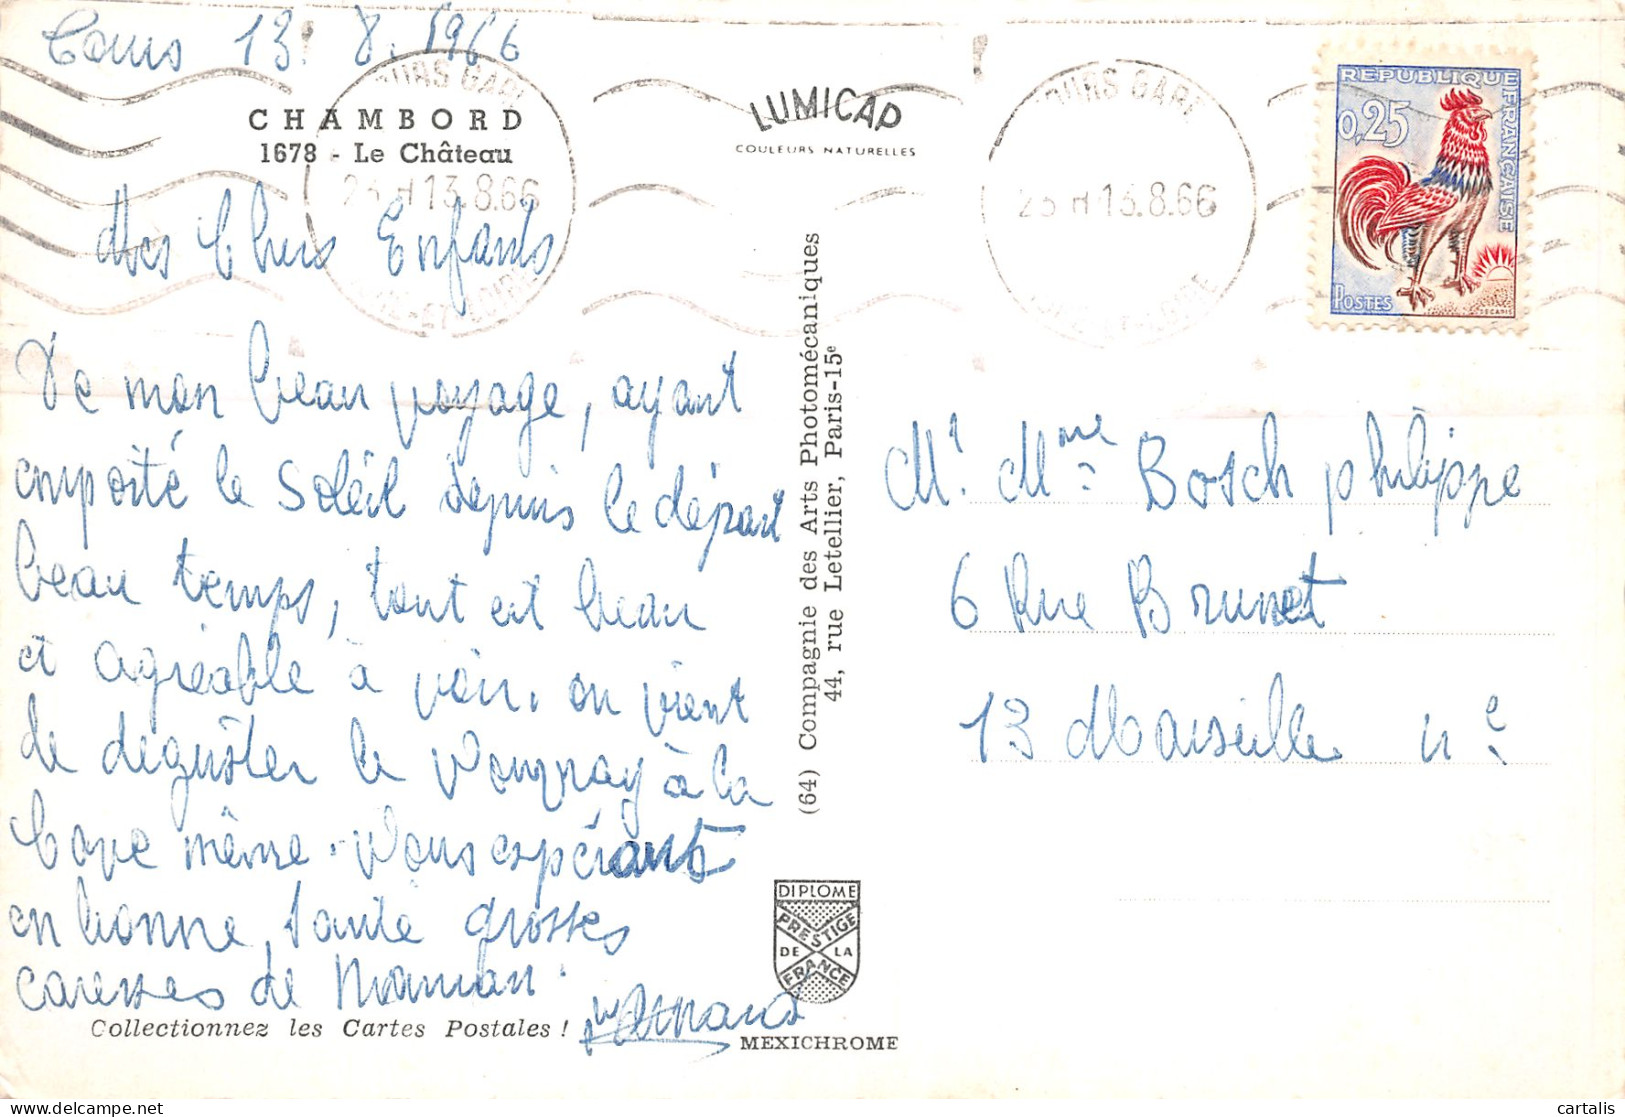 Tours 13. 8. 1966
CHAMBORD
1678 - Le Château
Mes Chers Enfants
De mon beau voyage, ayant
emporté le soleil depuis le départ
beau temps, tout est beau
et agréable à voir. on vient
de déguster le Vouvray à la
Cave même. Vous espérants
en bonne, santé grosses
caresses de Maman.
Collectionnez les Cartes Postales !
LUMICAP
COULEURS NATURELLES
(64) Compagnie des Arts Photomécaniques
44, rue Letellier, Paris-15e
DIPLOME
PRESTIGE
DE LA
FRANCE
MEXICHROME
TOURS GARE
13.8.66
TOURS GARE
13.8.66
REPUBLIQUE FRANÇAISE
0,25
POSTES
DECARIS
Mr. Mme Bosch philippe
6 Rue Brunet
13 Marseille
cartalis